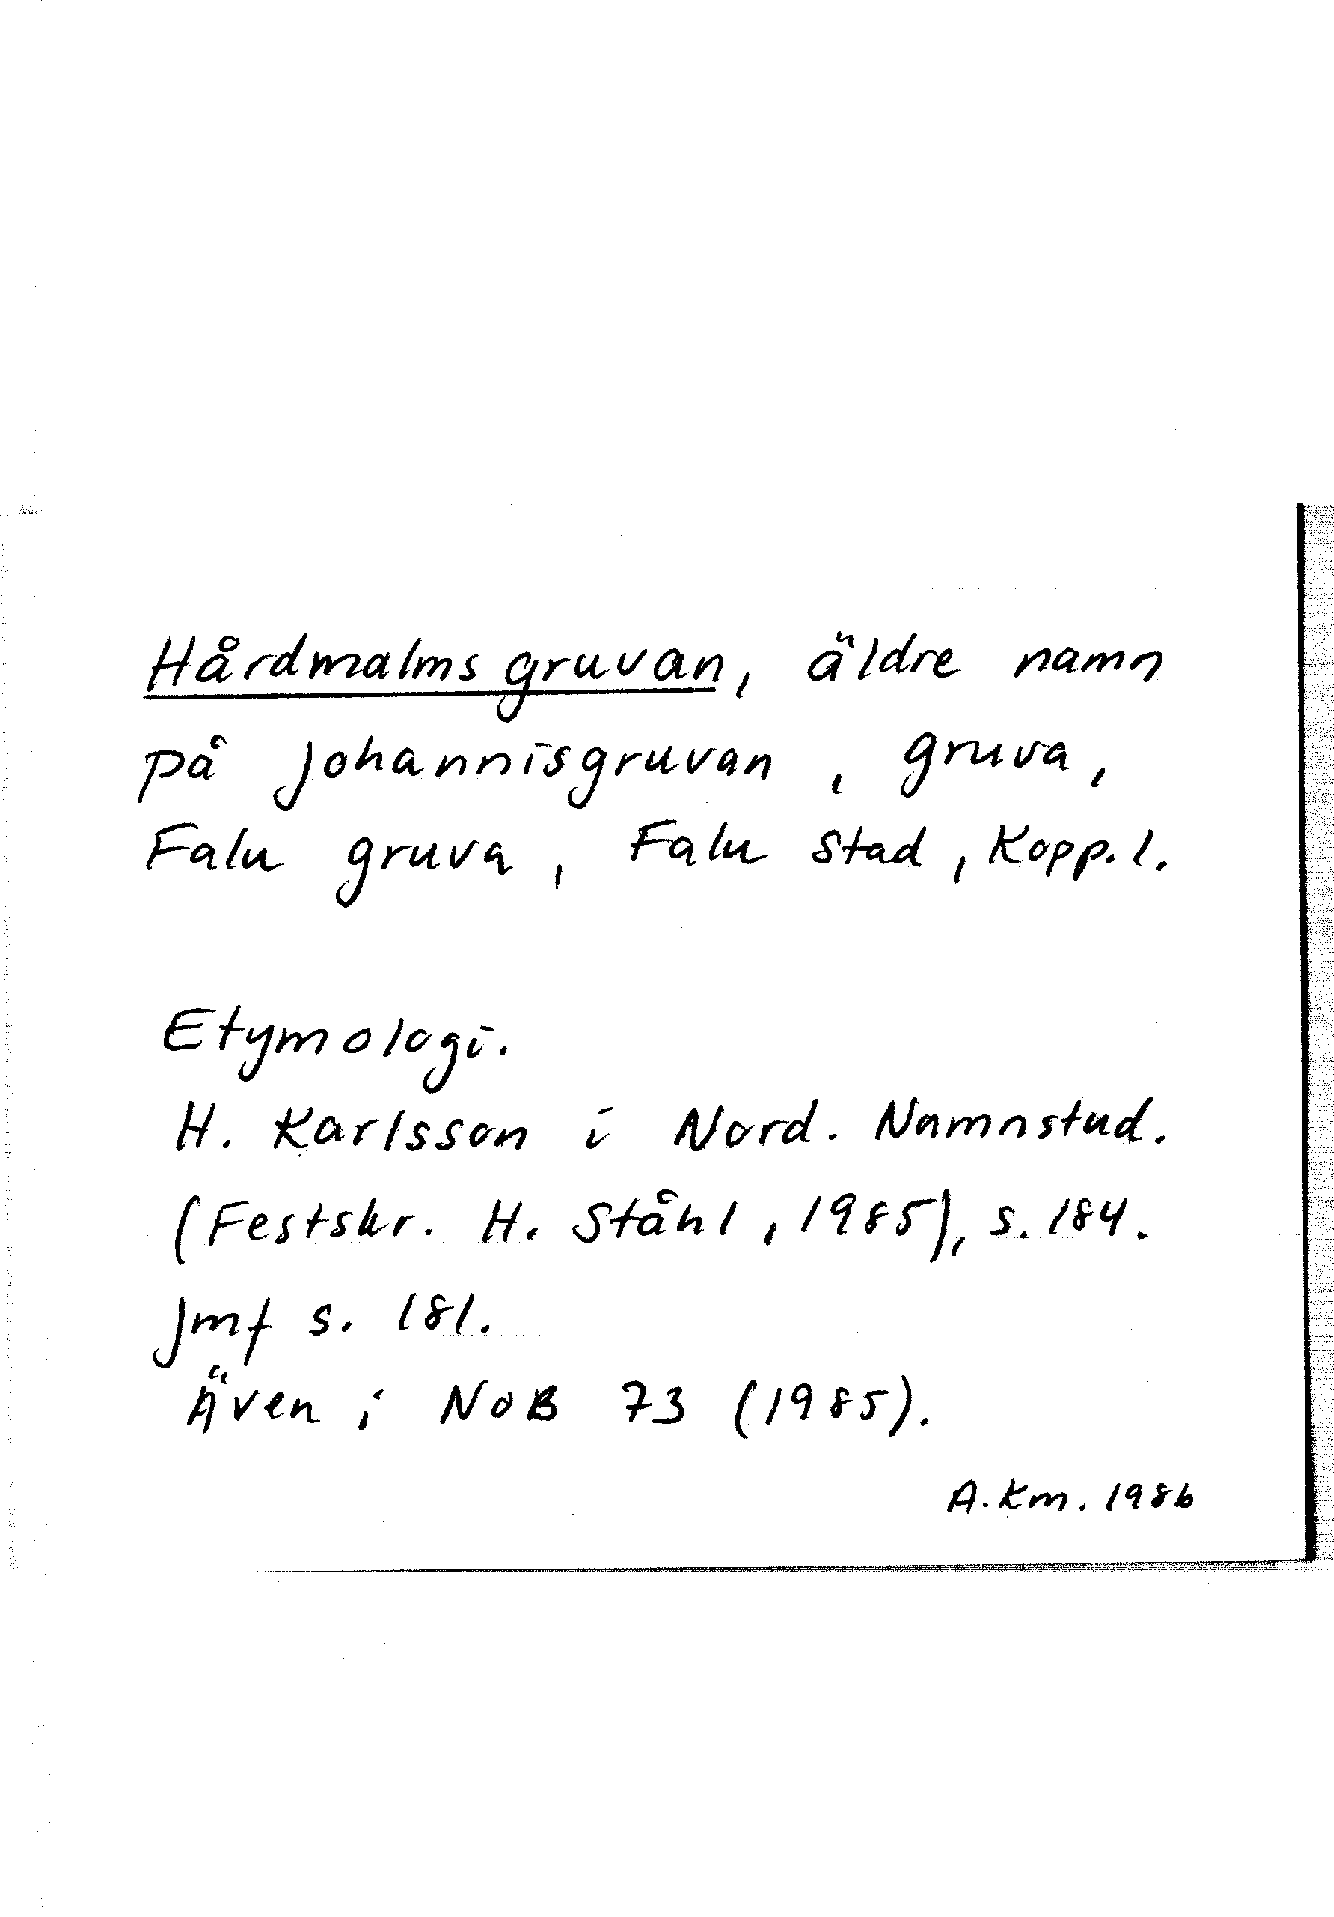 Hårdmalmsgruvan, äldre namn
på Johannisgruvan, gruva,
Falu gruva, Falu stad, Kopp.l.
Etymologi.
H. Karlsson i Nord. Namnstud.
(Festskr. H. Ståhl, 1985), s. 184.
Jmf s. 181.
Även i NoB 73 (1985).
A.Km. 1986